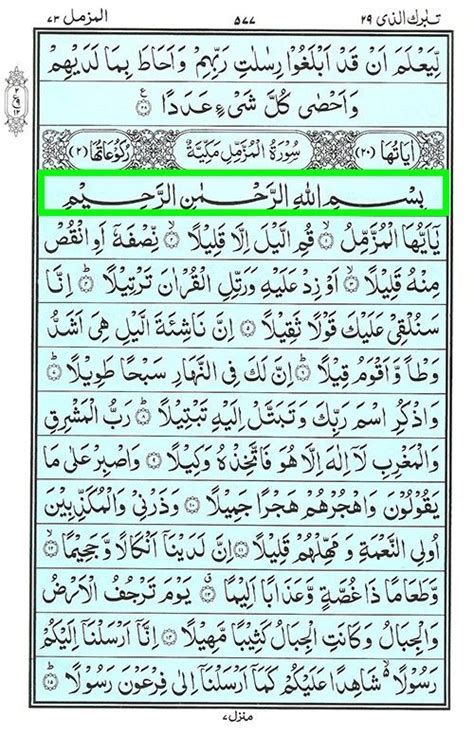 تبٰرك الذى ٢٩ ٥٧٧ المزمل ٧٣
لِّيَعْلَمَ اَنْ قَدْ اَبْلَغُوْا رِسٰلٰتِ رَبِّهِمْ وَاَحَاطَ بِمَا لَدَيْهِمْ
وَاَحْصٰى كُلَّ شَىْءٍ عَدَدًا ۝٢٨
اٰيَاتُهَا (٢٠) سُوْرَةُ الْمُزَّمِّلِ مَكِّيَّةٌ رُكُوْعَاتُهَا (٢)
بِسْمِ اللّٰهِ الرَّحْمٰنِ الرَّحِيْمِ
يٰۤاَيُّهَا الْمُزَّمِّلُ ۝١ قُمِ الَّيْلَ اِلَّا قَلِيْلًا ۝٢ نِّصْفَهٗۤ اَوِ انْقُصْ
مِنْهُ قَلِيْلًا ۝٣ اَوْ زِدْ عَلَيْهِ وَرَتِّلِ الْقُرْاٰنَ تَرْتِيْلًا ۝٤ اِنَّا
سَنُلْقِىْ عَلَيْكَ قَوْلًا ثَقِيْلًا ۝٥ اِنَّ نَاشِئَةَ الَّيْلِ هِىَ اَشَدُّ
وَطْاً وَّاَقْوَمُ قِيْلًا ۝٦ اِنَّ لَكَ فِى النَّهَارِ سَبْحًا طَوِيْلًا ۝٧
وَاذْكُرِ اسْمَ رَبِّكَ وَتَبَتَّلْ اِلَيْهِ تَبْتِيْلًا ۝٨ رَبُّ الْمَشْرِقِ
وَالْمَغْرِبِ لَاۤ اِلٰهَ اِلَّا هُوَ فَاتَّخِذْهُ وَكِيْلًا ۝٩ وَاصْبِرْ عَلٰى مَا
يَقُوْلُوْنَ وَاهْجُرْهُمْ هَجْرًا جَمِيْلًا ۝١٠ وَذَرْنِىْ وَالْمُكَذِّبِيْنَ
اُولِى النَّعْمَةِ وَمَهِّلْهُمْ قَلِيْلًا ۝١١ اِنَّ لَدَيْنَاۤ اَنْكَالًا وَّجَحِيْمًا ۝١٢
وَّطَعَامًا ذَا غُصَّةٍ وَّعَذَابًا اَلِيْمًا ۝١٣ يَوْمَ تَرْجُفُ الْاَرْضُ
وَالْجِبَالُ وَكَانَتِ الْجِبَالُ كَثِيْبًا مَّهِيْلًا ۝١٤ اِنَّاۤ اَرْسَلْنَاۤ اِلَيْكُمْ
رَسُوْلًا ۙ شَاهِدًا عَلَيْكُمْ كَمَاۤ اَرْسَلْنَاۤ اِلٰى فِرْعَوْنَ رَسُوْلًا ۝١٥
منزل ٧